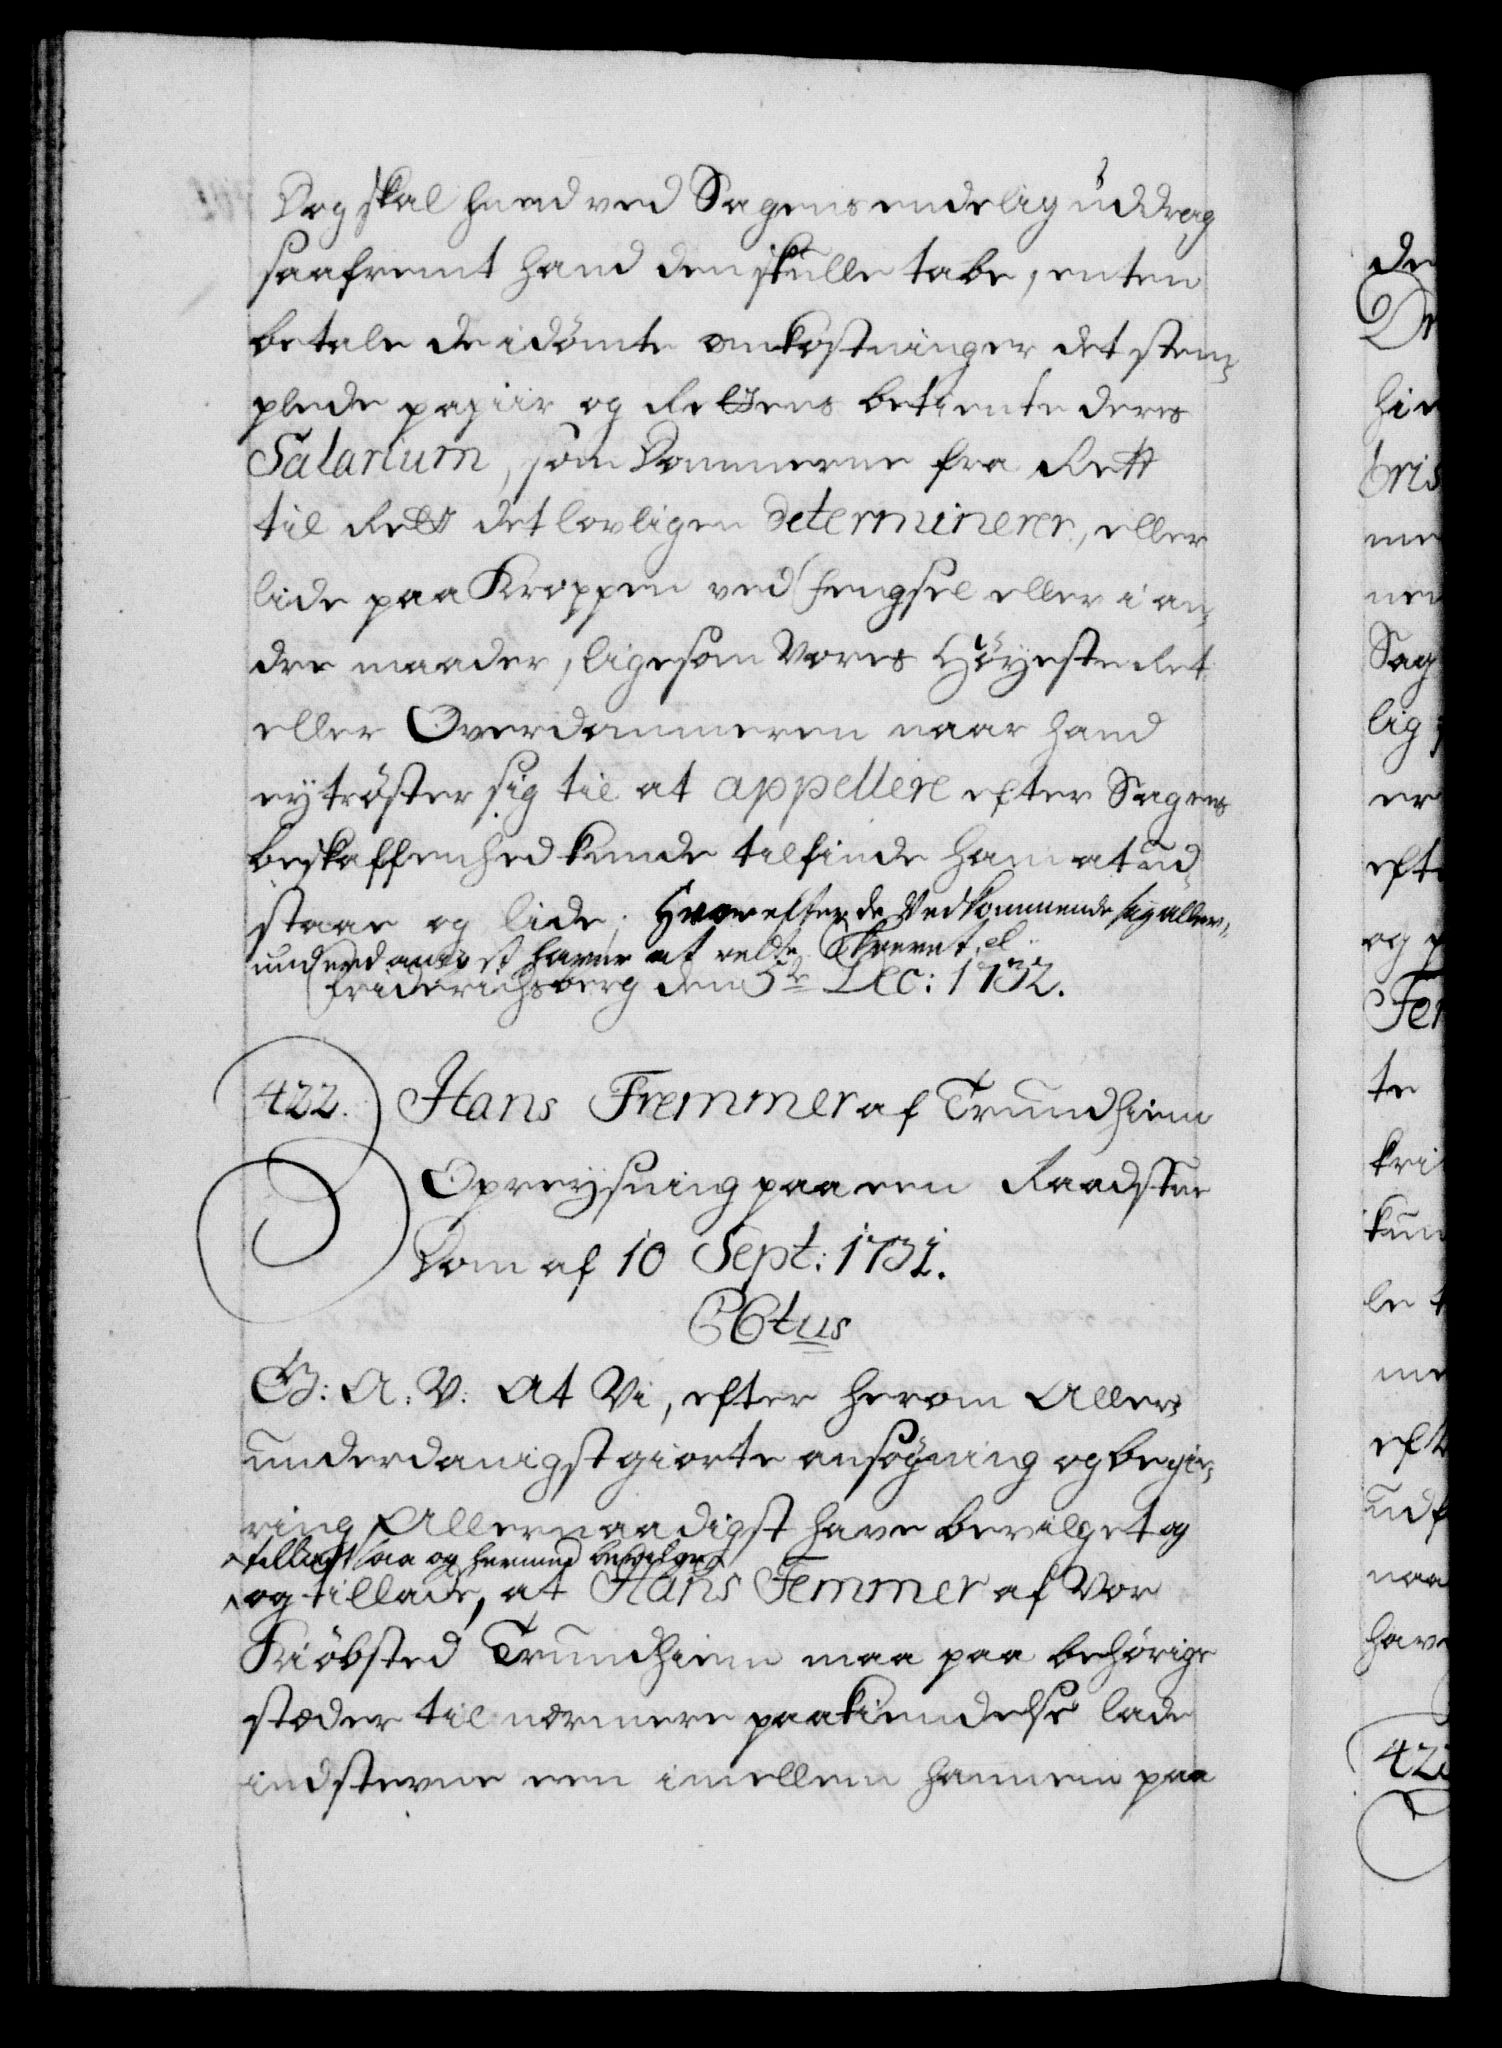 Dog skal hand ved Sagens endelig uddrag
saafremt hand den skulle tabe, enten
betale de idømte omkostninger det stem-
plede papiir og Rettens betiente deres
Salarium, som Dommerne fra Rett
til Rett det lovligen determinerer, eller
lide paa Kroppen ved fengsel eller i an-
dre maader, ligesom Vores Høyeste Ret
eller Overdommeren naar hand
ey trøster sig til at appellere efter Sagens
beskaffenhed kunde tilfinde ham at ud-
staae og lide. Hvorefter de Vedkommende sig aller-
underdanigst haver at rette. Skrevet
Friderichsberg den 5te Dec: 1732.
422. Hans Fremmer af Trundhiem
Opreysning paa een Raadstue
Dom af 10 Sept: 1731.
G: A: V: At Vi, efter herom Aller-
underdanigst giorte ansøgning og begie-
ring Allernaadigst have bevilget og
tilladt saa og hermed bevilger
og tillade, at Hans Femmer af Vor
Kiøbsted Trundhiem maa paa behørige
stæder til nærmere paakiendelse lade
indstevne een imellem hannem paa
de
hie
bris
me
nen
Sag
lig
er
efte
og
te
kri
kun
le
me
eft
udf
naa
hav